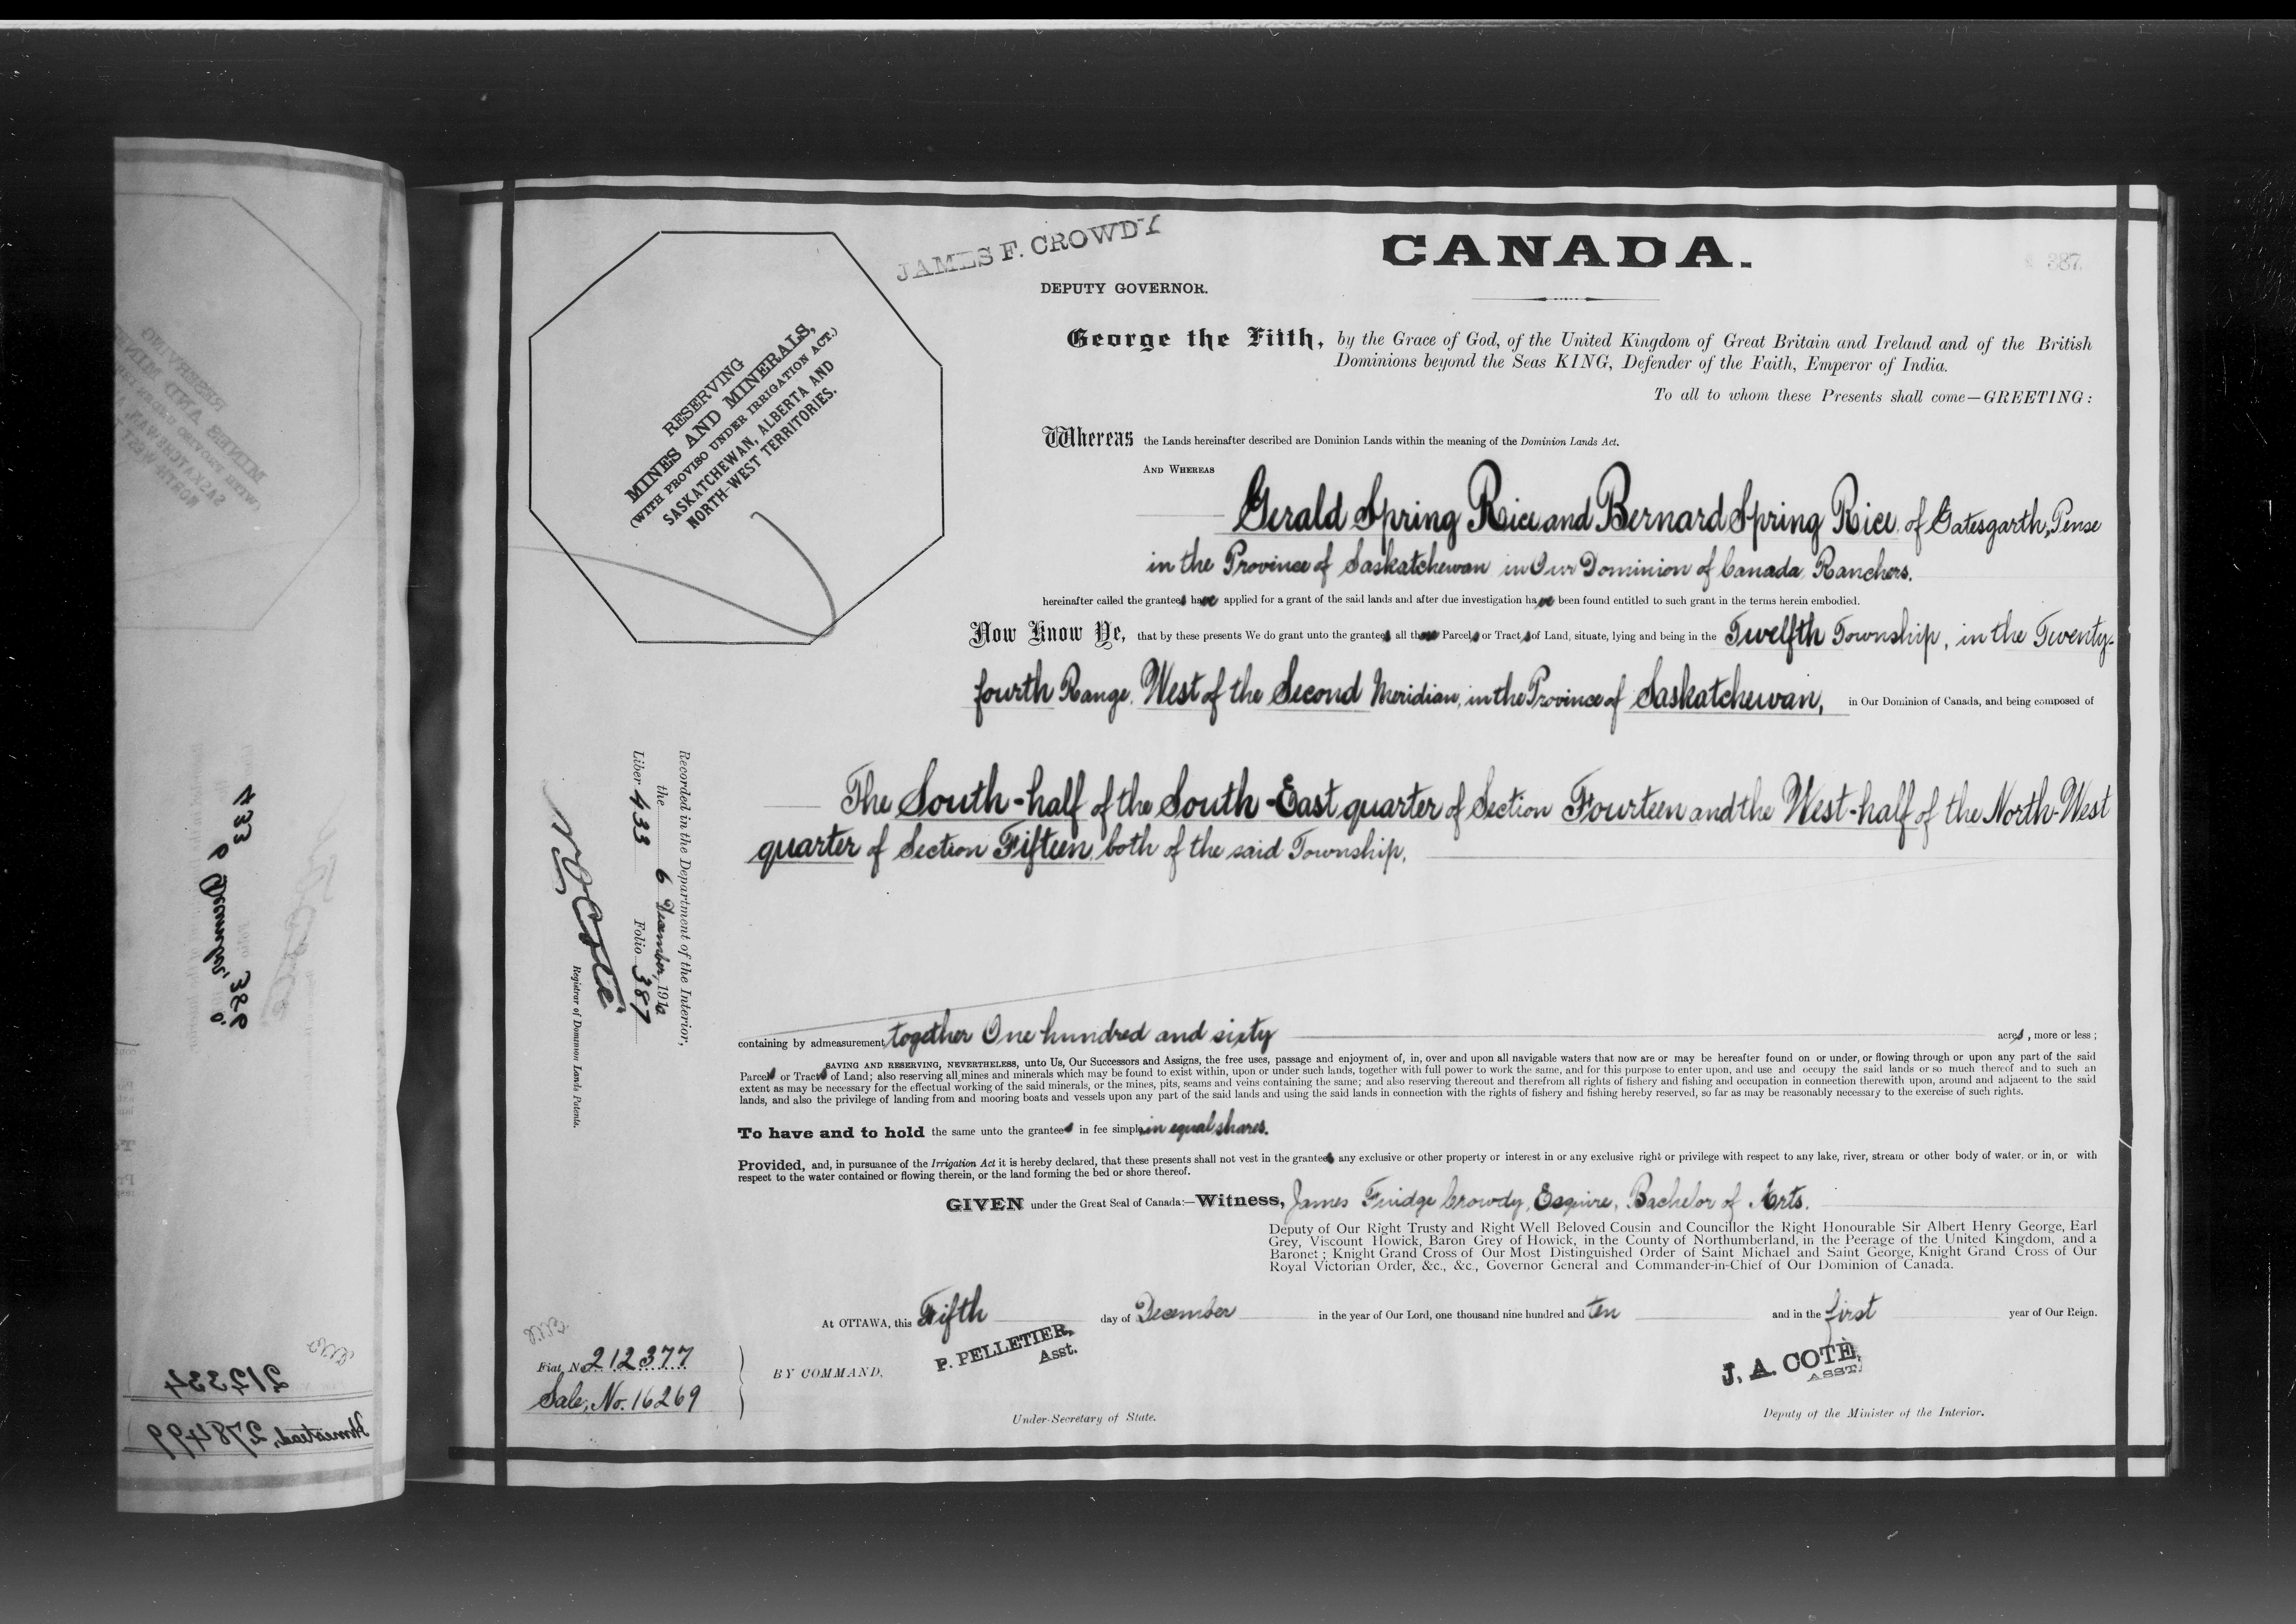 JAMES F. CROWDY
DEPUTY GOVERNOR.
CANADA.
387
RESERVING
MINES AND MINERALS,
(WITH PROVISO UNDER IRRIGATION ACT.)
SASKATCHEWAN, ALBERTA AND
NORTH-WEST TERRITORIES.
George the Fifth, by the Grace of God, of the United Kingdom of Great Britain and Ireland and of the British
Dominions beyond the Seas KING, Defender of the Faith, Emperor of India.
To all to whom these Presents shall come—GREETING:
Whereas the Lands hereinafter described are Dominion Lands within the meaning of the Dominion Lands Act.
AND WHEREAS
Gerald Spring Rice and Bernard Spring Rice, of Gatesgarth, Pense
in the Province of Saskatchewan in Our Dominion of Canada, Ranchers.
hereinafter called the grantees have applied for a grant of the said lands and after due investigation have been found entitled to such grant in the terms herein embodied.
Now Know Ye, that by these presents We do grant unto the grantees all those Parcels or Tracts of Land, situate, lying and being in the Twelfth Township, in the Twenty-
fourth Range, West of the Second Meridian, in the Province of Saskatchewan, in Our Dominion of Canada, and being composed of
The South-half of the South-East quarter of Section Fourteen and the West-half of the North-West
quarter of Section Fifteen, both of the said Township,
containing by admeasurement, together One hundred and sixty acres, more or less;
SAVING AND RESERVING, NEVERTHELESS, unto Us, Our Successors and Assigns, the free uses, passage and enjoyment of, in, over and upon all navigable waters that now are or may be hereafter found on or under, or flowing through or upon any part of the said
Parcels or Tracts of Land; also reserving all mines and minerals which may be found to exist within, upon or under such lands, together with full power to work the same, and for this purpose to enter upon, and use and occupy the said lands or so much thereof and to such an
extent as may be necessary for the effectual working of the said minerals, or the mines, pits, seams and veins containing the same; and also reserving thereout and therefrom all rights of fishery and fishing and occupation in connection therewith upon, around and adjacent to the said
lands, and also the privilege of landing from and mooring boats and vessels upon any part of the said lands and using the said lands in connection with the rights of fishery and fishing hereby reserved, so far as may be reasonably necessary to the exercise of such rights.
To have and to hold the same unto the grantees in fee simple, in equal shares.
Provided, and, in pursuance of the Irrigation Act it is hereby declared, that these presents shall not vest in the grantees any exclusive or other property or interest in or any exclusive right or privilege with respect to any lake, river, stream or other body of water, or in, or with
respect to the water contained or flowing therein, or the land forming the bed or shore thereof.
GIVEN under the Great Seal of Canada:—Witness, James Fuidge Crowdy, Esquire, Bachelor of Arts.
Deputy of Our Right Trusty and Right Well Beloved Cousin and Councillor the Right Honourable Sir Albert Henry George, Earl
Grey, Viscount Howick, Baron Grey of Howick, in the County of Northumberland, in the Peerage of the United Kingdom, and a
Baronet; Knight Grand Cross of Our Most Distinguished Order of Saint Michael and Saint George, Knight Grand Cross of Our
Royal Victorian Order, &c., &c., Governor General and Commander-in-Chief of Our Dominion of Canada.
At OTTAWA, this Fifth day of December in the year of Our Lord, one thousand nine hundred and ten and in the first year of Our Reign.
P. PELLETIER,
Asst.
J. A. COTÉ,
ASST.
Fiat, No. 212377
Sale, No. 16269
BY COMMAND,
Under-Secretary of State.
Deputy of the Minister of the Interior.
Recorded in the Department of the Interior,
the 6 December, 1910
Liber 433 Folio 387
Registrar of Dominion Lands Patents.
212334
Homestead, 278499